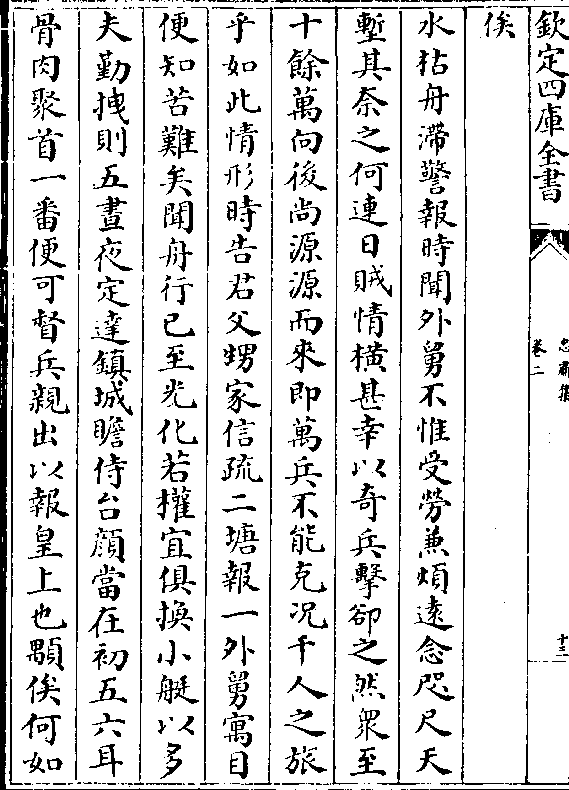 欽定四庫全書
卷二
十三
俟
水枯舟滯警報時聞外舅不惟受勞兼煩遠念咫尺天
塹其奈之何連日賊情橫甚幸以奇兵擊卻之然衆至
十餘萬向後尚源源而來即萬兵不能克况千人之旅
乎如此情形時告君父甥家信疏二塘報一外舅寓目
便知苦難矣聞舟行已至光化若擢宜俱換小艇以多
夫勤拽則五晝夜定達鎮城瞻侍台顔當在初五六耳
骨肉聚首一番便可督兵親出以報皇上也顒俟何如